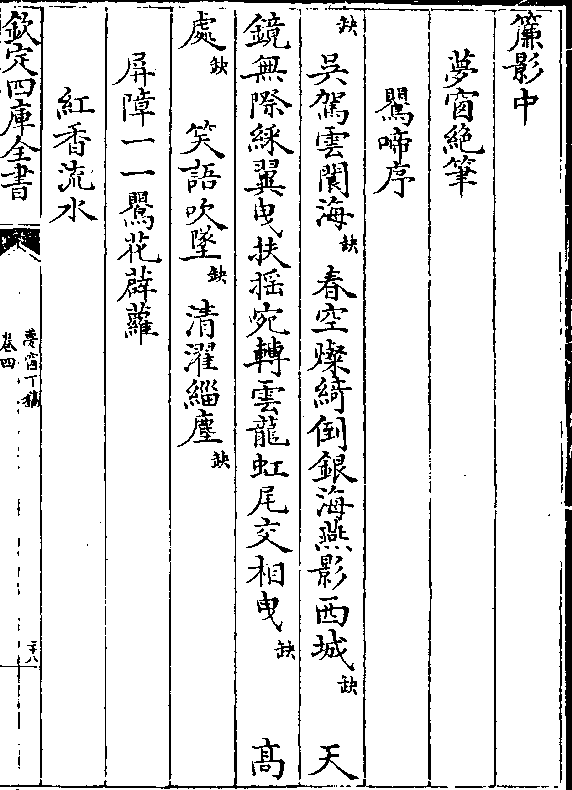 簾影中
夢窗絕筆
鸎啼序
缺吳駕雲閬海缺春空燦綺倒銀海燕影西城缺天
鏡無際綵翼曳扶搖宛轉雲龍虹尾交相曳缺高
處缺笑語吹墜缺清濯緇塵缺
屏障一一鸎花薜蘿
紅香流水
欽定四庫全書
夢窗丁稿
卷四